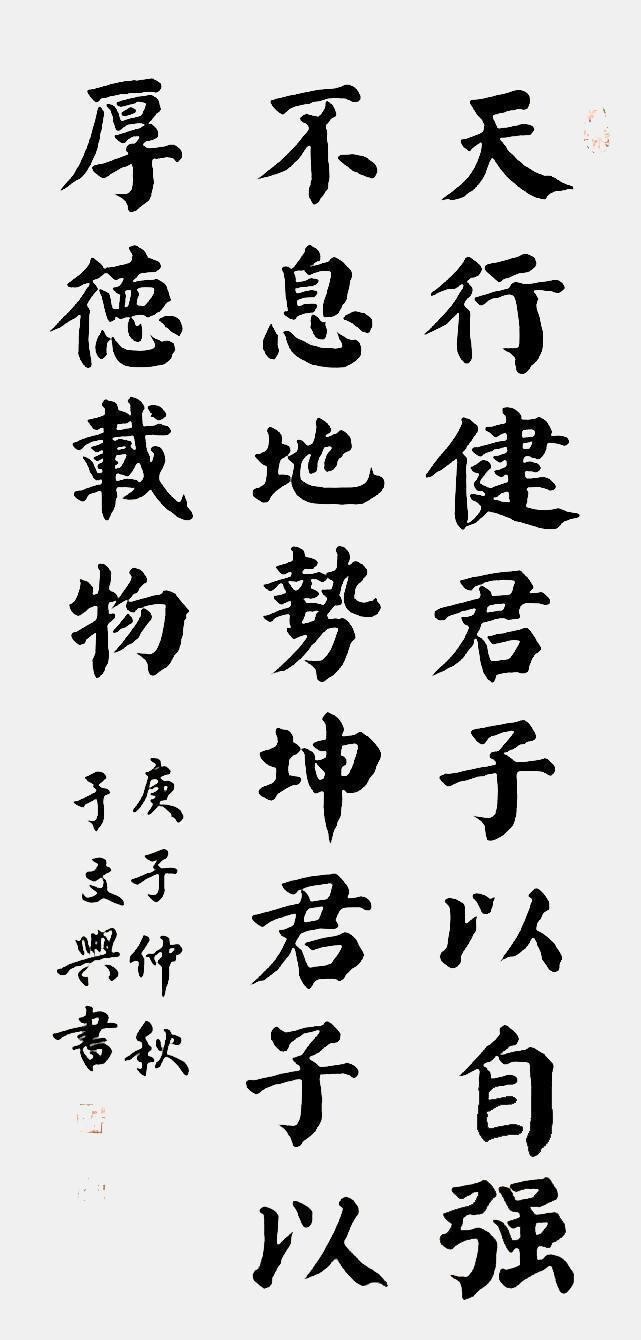 天行健君子以自强
不息地勢坤君子以
厚德載物
庚子仲秋
于文興書